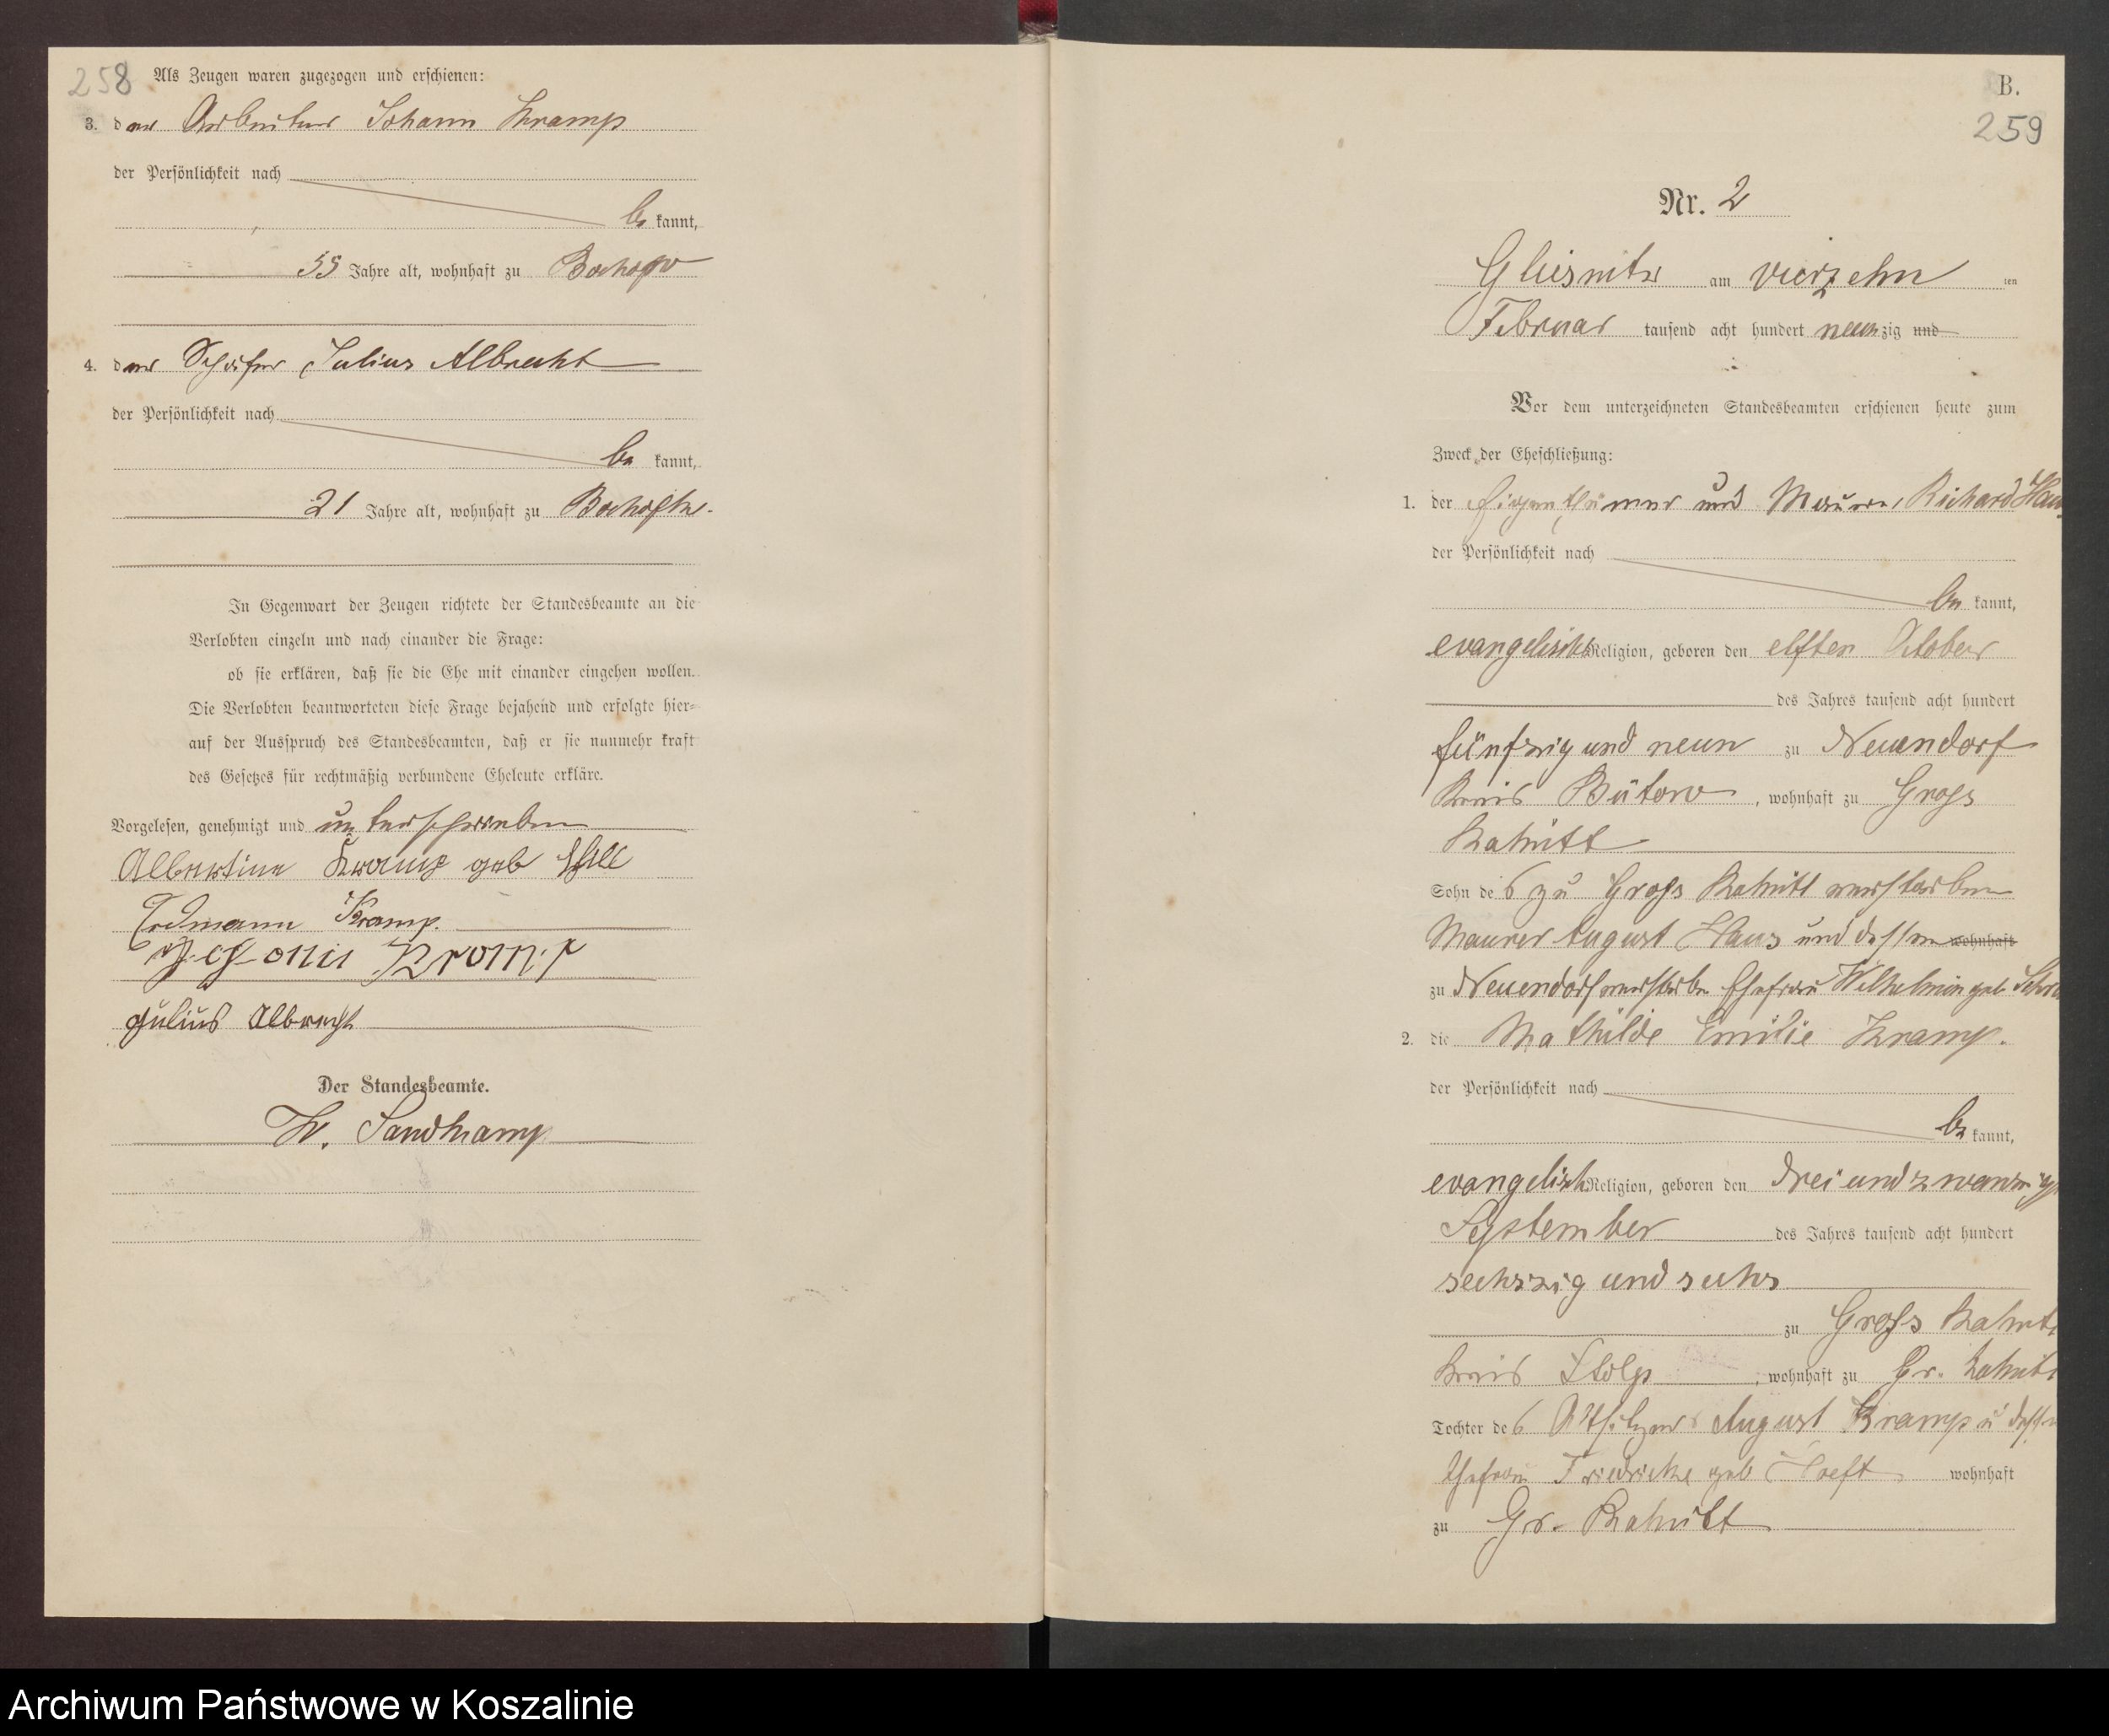 258 Als Zeugen waren zugezogen und erschienen:
3. der Arbeiter Johann Kramp
der Persönlichkeit nach
be kannt,
55 Jahre alt, wohnhaft zu Bochow
4. der Schäfer Julius Albrecht
der Persönlichkeit nach
be kannt,
21 Jahre alt, wohnhaft zu
In Gegenwart der Zeugen richtete der Standesbeamte an die
Verlobten einzeln und nach einander die Frage:
ob sie erklären, daß sie die Ehe mit einander eingehen wollen.
Die Verlobten beantworteten diese Frage bejahend und erfolgte hier-
auf der Ausspruch des Standesbeamten, daß er sie nunmehr kraft
des Gesetzes für rechtmäßig verbundene Eheleute erkläre.
Vorgelesen, genehmigt und unterschrieben
Albertine Kramp geb
Erdmann Kramp.
Kramp
Julius Albrecht
Der Standesbeamte.
Sandkamp
B.
259
Nr. 2
Gliesnitz am vierzehn ten
Februar tausend acht hundert neunzig und
Vor dem unterzeichneten Standesbeamten erschienen heute zum
Zweck der Eheschließung:
1. der Eigenthümer und Maurer, Richard Haus
der Persönlichkeit nach
be kannt,
evangelischer Religion, geboren den elften October
des Jahres tausend acht hundert
fünfzig und neun zu Neuendorf
Kreis Bütow, wohnhaft zu Gross
Rakitt
Sohn des zu Gross Rakitt verstorbenen
Maurer August Haus und dessen wohnhaft
zu Neuendorf verstorben Ehefrau Wilhelmin geb
2. die Mathilde Emilie Kramp.
der Persönlichkeit nach
be kannt,
evangelisch Religion, geboren den dreiundzwanzig
September des Jahres tausend acht hundert
sechszig und sechs
zu Gross Rakitt
Kreis Stolp, wohnhaft zu Gr. Rakitt
Tochter des Altsitzer August Kramp u dessen
Ehefrau Friedricke geb wohnhaft
zu Gr. Rakitt
Archiwum Państwowe w Koszalinie